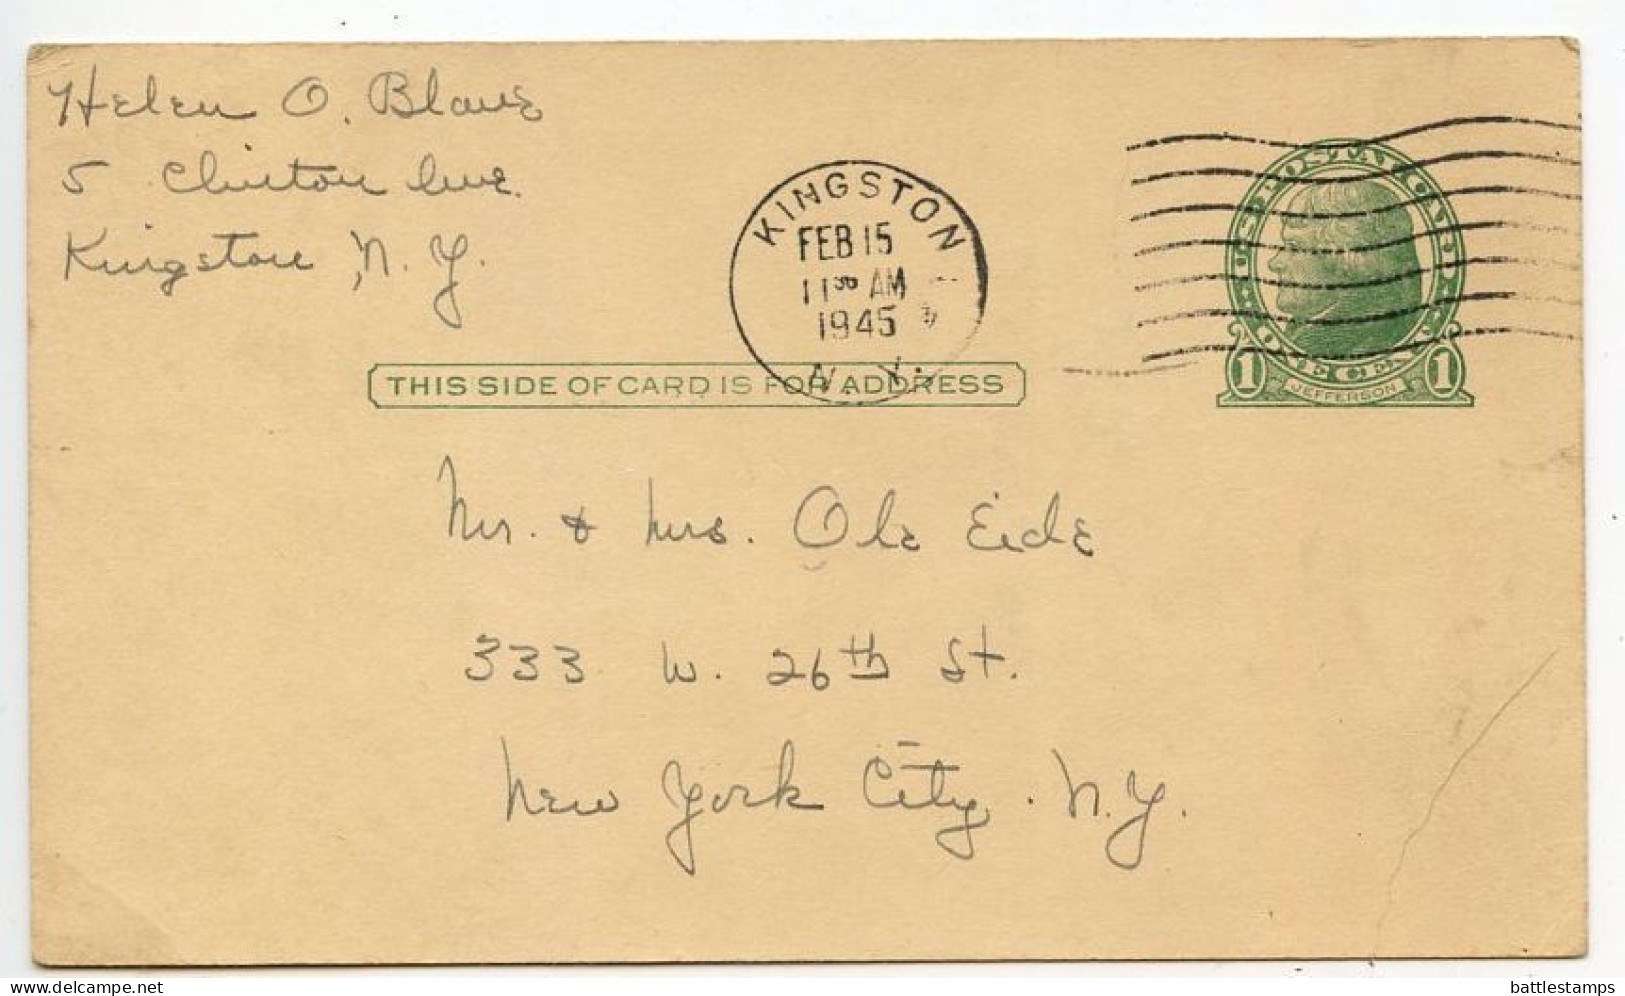 Helen O. Blave
5 Clinton Ave.
Kingston, N.Y.
KINGSTON
FEB 15
11 30 AM
1945
N.Y.
U.S. POSTAL CARD
ONE CENT
1 JEFFERSON 1
THIS SIDE OF CARD IS FOR ADDRESS
Mr. & Mrs. Ole Eide
333 W. 26th St.
New York City, N.Y.
delcampe.net
battlestamps